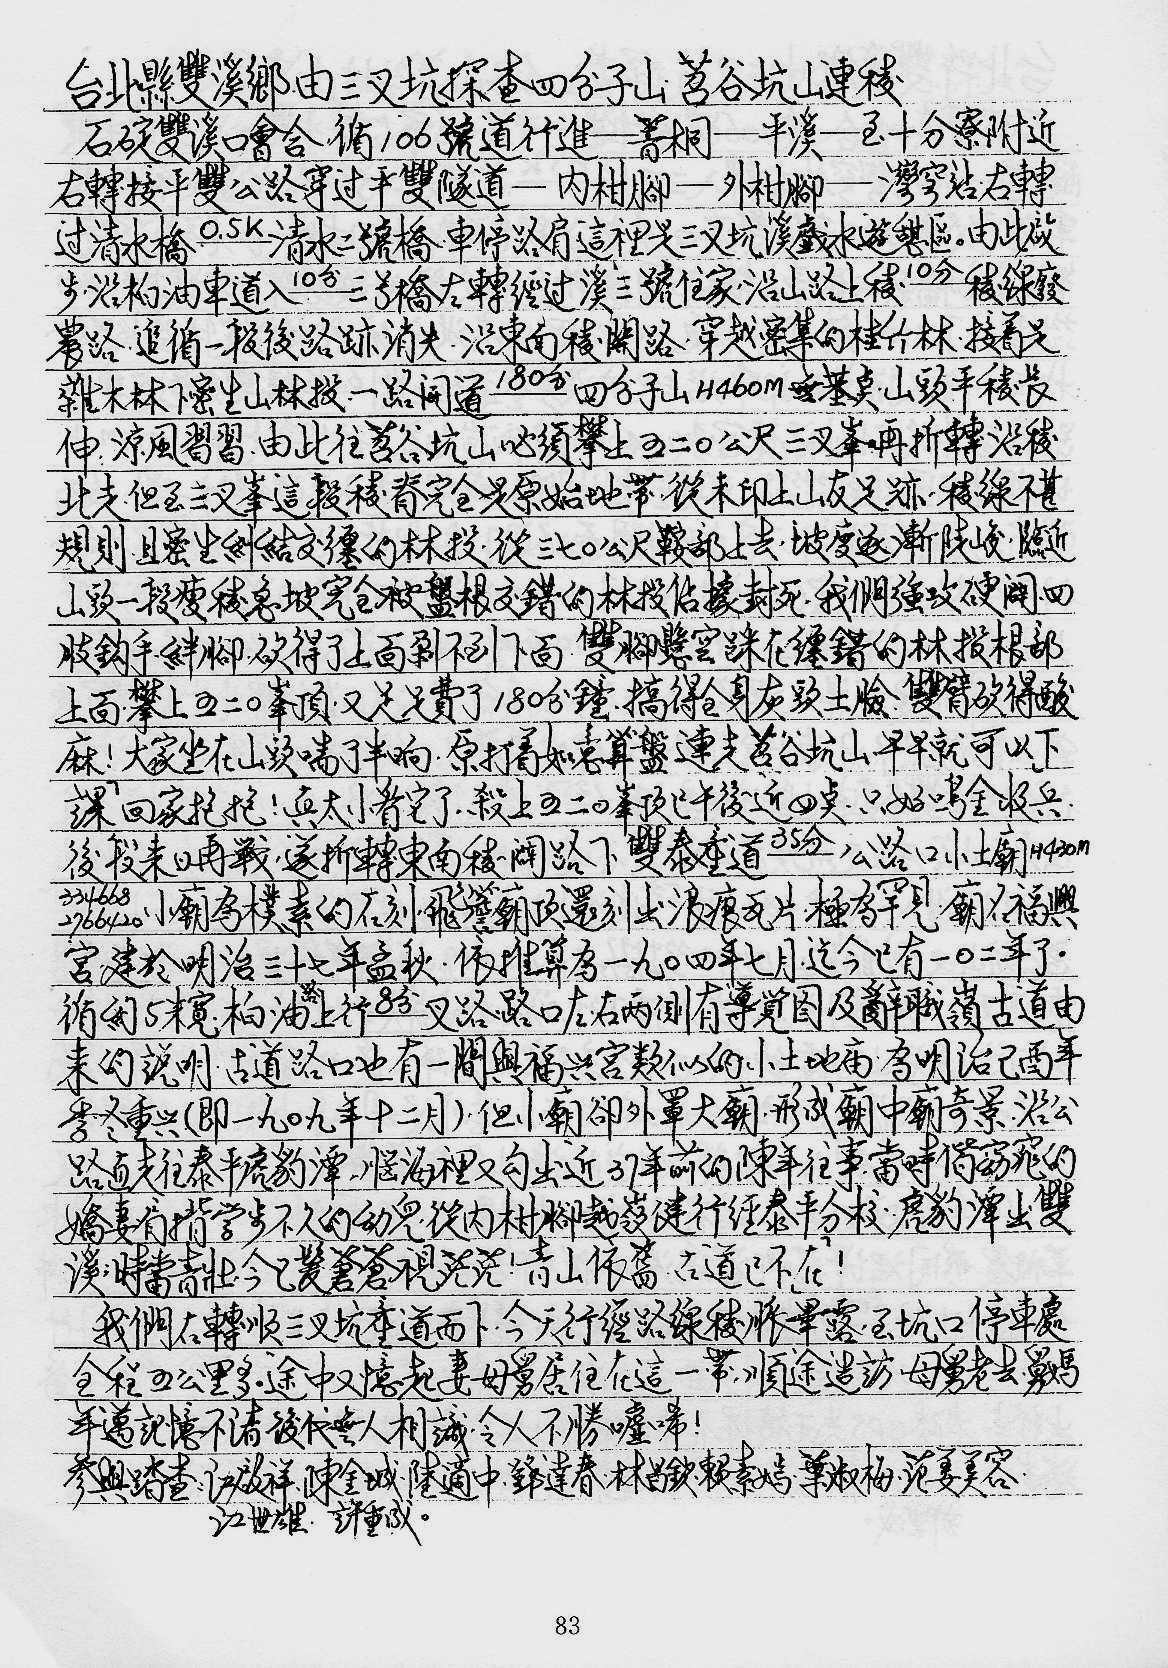 台北縣雙溪鄉.由三叉坑探查四分子山.莒谷坑山連稜
石碇雙溪口會合.循106號道行進—菁桐—平溪—至十分寮附近
右轉接平雙公路穿过平雙隧道—內柑腳—外柑腳—灣穹站右轉
过清水橋 0.5K 清水二號橋.車停路肩這裡是三叉坑溪戲水遊憩區。由此啟
步.沿柏油車道入 10分 三号橋左轉經过溪三號住家.沿山路上稜 10分 稜線廢
農路.追循一段後路跡消失.沿東南稜開路.穿越密集的桂竹林.接着是
雜木林下密生山林投.一路開道 180分 四分子山H460M無基点.山頭平稜長
伸.涼風習習.由此往莒谷坑山必須攀上五二〇公尺三叉峯.再折轉沿稜
北走但至三叉峯這段稜脊完全是原始地帶.從未印上山友足跡.稜線不甚
規則.且密生糾結交纏的林投.從三七〇公尺鞍部上去.坡度逐漸陡峻.臨近
山頭一段瘦稜急坡完全被盤根交錯的林投佔據封死.我們強攻硬闖.四
肢鈎手絆腳.砍得了上面剁不到下面.雙腳懸空踩在纏錯的林投根部
上面.攀上五二〇峯頂.又足足費了180分鐘.搞得全身灰頭土臉.雙臂砍得酸
麻!大家坐在山頭喘了半晌.原打着如意算盤連走莒谷坑山早早就可以下
課"回家抱抱!真太小看它了.殺上五二〇峯頂已午後近四点.只好鳴金收兵.
後段来日再戰.遂折轉東南稜.開路下雙泰產道 35分 公路口小土廟H430M
334668
2766420 小廟為樸素的石刻.飛簷廟頂還刻出浪痕瓦片.極為罕見.廟名福興
宮建於明治三十七年孟秋.依推算為一九〇四年七月.迄今已有一〇二年了.
循約5米寬.柏油路上行 8分 叉路.路口左右兩側有導覽图及辭職嶺古道由
来的說明.古道路口也有一間與福兴宮類似的小土地庙.為明治己酉年
季冬重兴(即一九〇九年十二月).但小廟卻外罩大廟.形成廟中廟奇景.沿公
路直走往泰平虎豹潭.腦海裡又勾出近37年前的陳年往事.當時偕窈窕的
嬌妻肩揹學步不久的幼兒.從內柑腳越嶺健行經泰平分校.虎豹潭出雙
溪.時當青壯.今已髮蒼蒼.視茫茫!青山依舊.古道已不在!
我們右轉順三叉坑產道而下.今天行經路線稜脈畢露.至坑口停車處
全程五公里多.途中又憶起妻母舅居住在這一帶.順途造訪.母舅老去.舅媽
年邁記憶不清.後代無人相識.令人不勝噓唏!
參與踏查:江啟祥.陳金城.陸適中.鄒達春.林昌欽.賴素嫣.葉淑梅.范姜美容.
江世雄.許重成。
83